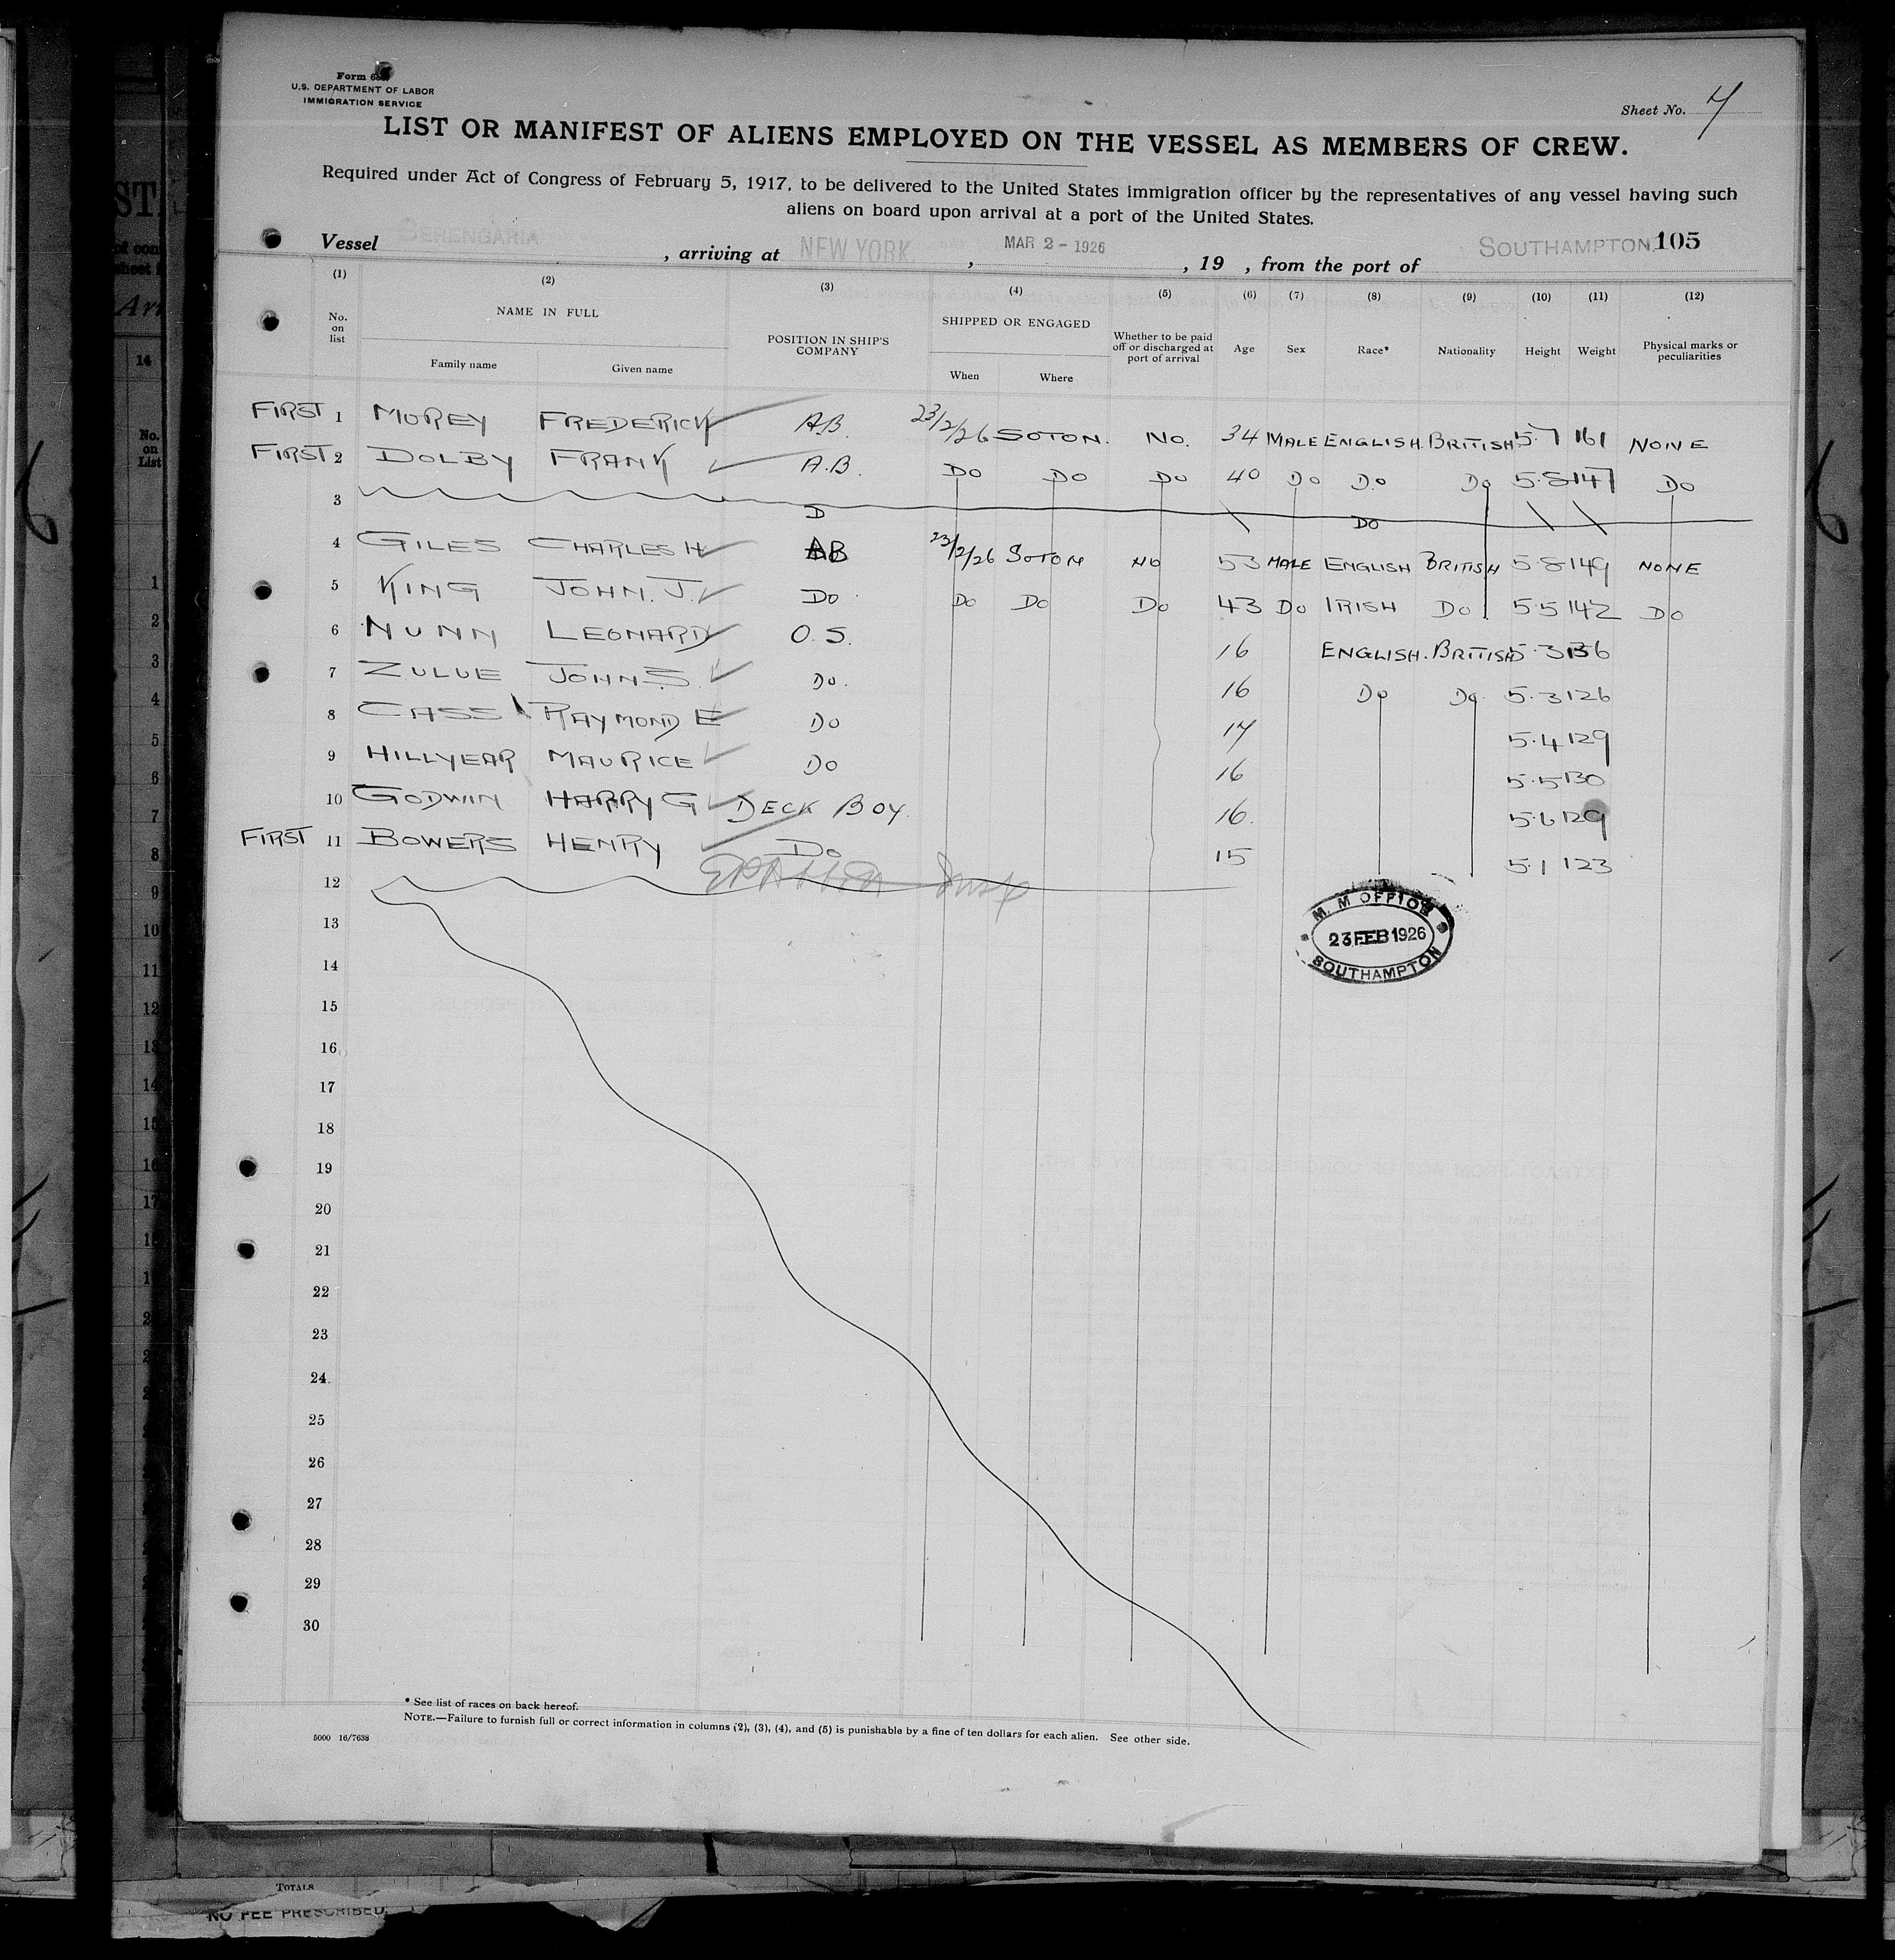 Form 6
U.S. DEPARTMENT OF LABOR
IMMIGRATION SERVICE
Sheet No. 4
LIST OR MANIFEST OF ALIENS EMPLOYED ON THE VESSEL AS MEMBERS OF CREW.
Required under Act of Congress of February 5, 1917, to be delivered to the United States immigration officer by the representatives of any vessel having such
aliens on board upon arrival at a port of the United States.
Vessel BERENGARIA, arriving at NEW YORK, MAR 2 - 1926, 19 , from the port of SOUTHAMPTON 105
(1) (2) (3) (4) (5) (6) (7) (8) (9) (10) (11) (12)
No. on list NAME IN FULL Family name Given name POSITION IN SHIP'S COMPANY SHIPPED OR ENGAGED When Where Whether to be paid off or discharged at port of arrival Age Sex Race* Nationality Height Weight Physical marks or peculiarities
FIRST 1 MOREY FREDERICK A.B. 23/2/26 SOTON. NO. 34 MALE ENGLISH. BRITISH 5.7 161 NONE
FIRST 2 DOLBY FRANK A.B. DO DO DO 40 DO DO DO 5.8 147 DO
3 D DO
4 GILES CHARLES H AB 23/2/26 SOTON NO 53 MALE ENGLISH BRITISH 5.8 149 NONE
5 KING JOHN. J. DO DO DO DO 43 DO IRISH DO 5.5 142 DO
6 NUNN LEONARD O.S. 16 ENGLISH. BRITISH 5.3 136
7 ZULUE JOHN S. DO. 16 DO DO 5.3 126
8 CASS RAYMOND E DO 17 5.4 129
9 HILLYEAR MAURICE DO 16 5.5 130
10 GODWIN HARRY G DECK BOY. 16. 5.6 129
FIRST 11 BOWERS HENRY DO 15 5.1 123
12
13
14
15
16
17
18
19
20
21
22
23
24
25
26
27
28
29
30
M. M OFFICE
23 FEB 1926
SOUTHAMPTON
* See list of races on back hereof.
NOTE.—Failure to furnish full or correct information in columns (2), (3), (4), and (5) is punishable by a fine of ten dollars for each alien. See other side.
5000 16/7638
TOTALS
NO FEE PRESCRIBED